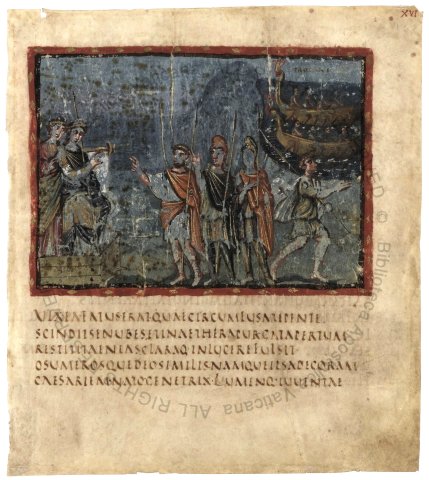 XVI
VIXEAFATUSERATQUAECIRCUMFUSAREPENTE
SCINDITSENUBESETINAETHERAPURGATAPERTUM
RESTITITAENEASCLARAQ·INLUCEREFULSIT
OSUMEROSQUEDEOSIMILISNAMQUEIPSADECORAM
CAESARIEMNATOGENETRIX·LUMENQ·IUVENTAE
© Biblioteca Apostolica Vaticana ALL RIGHTS RESERVED